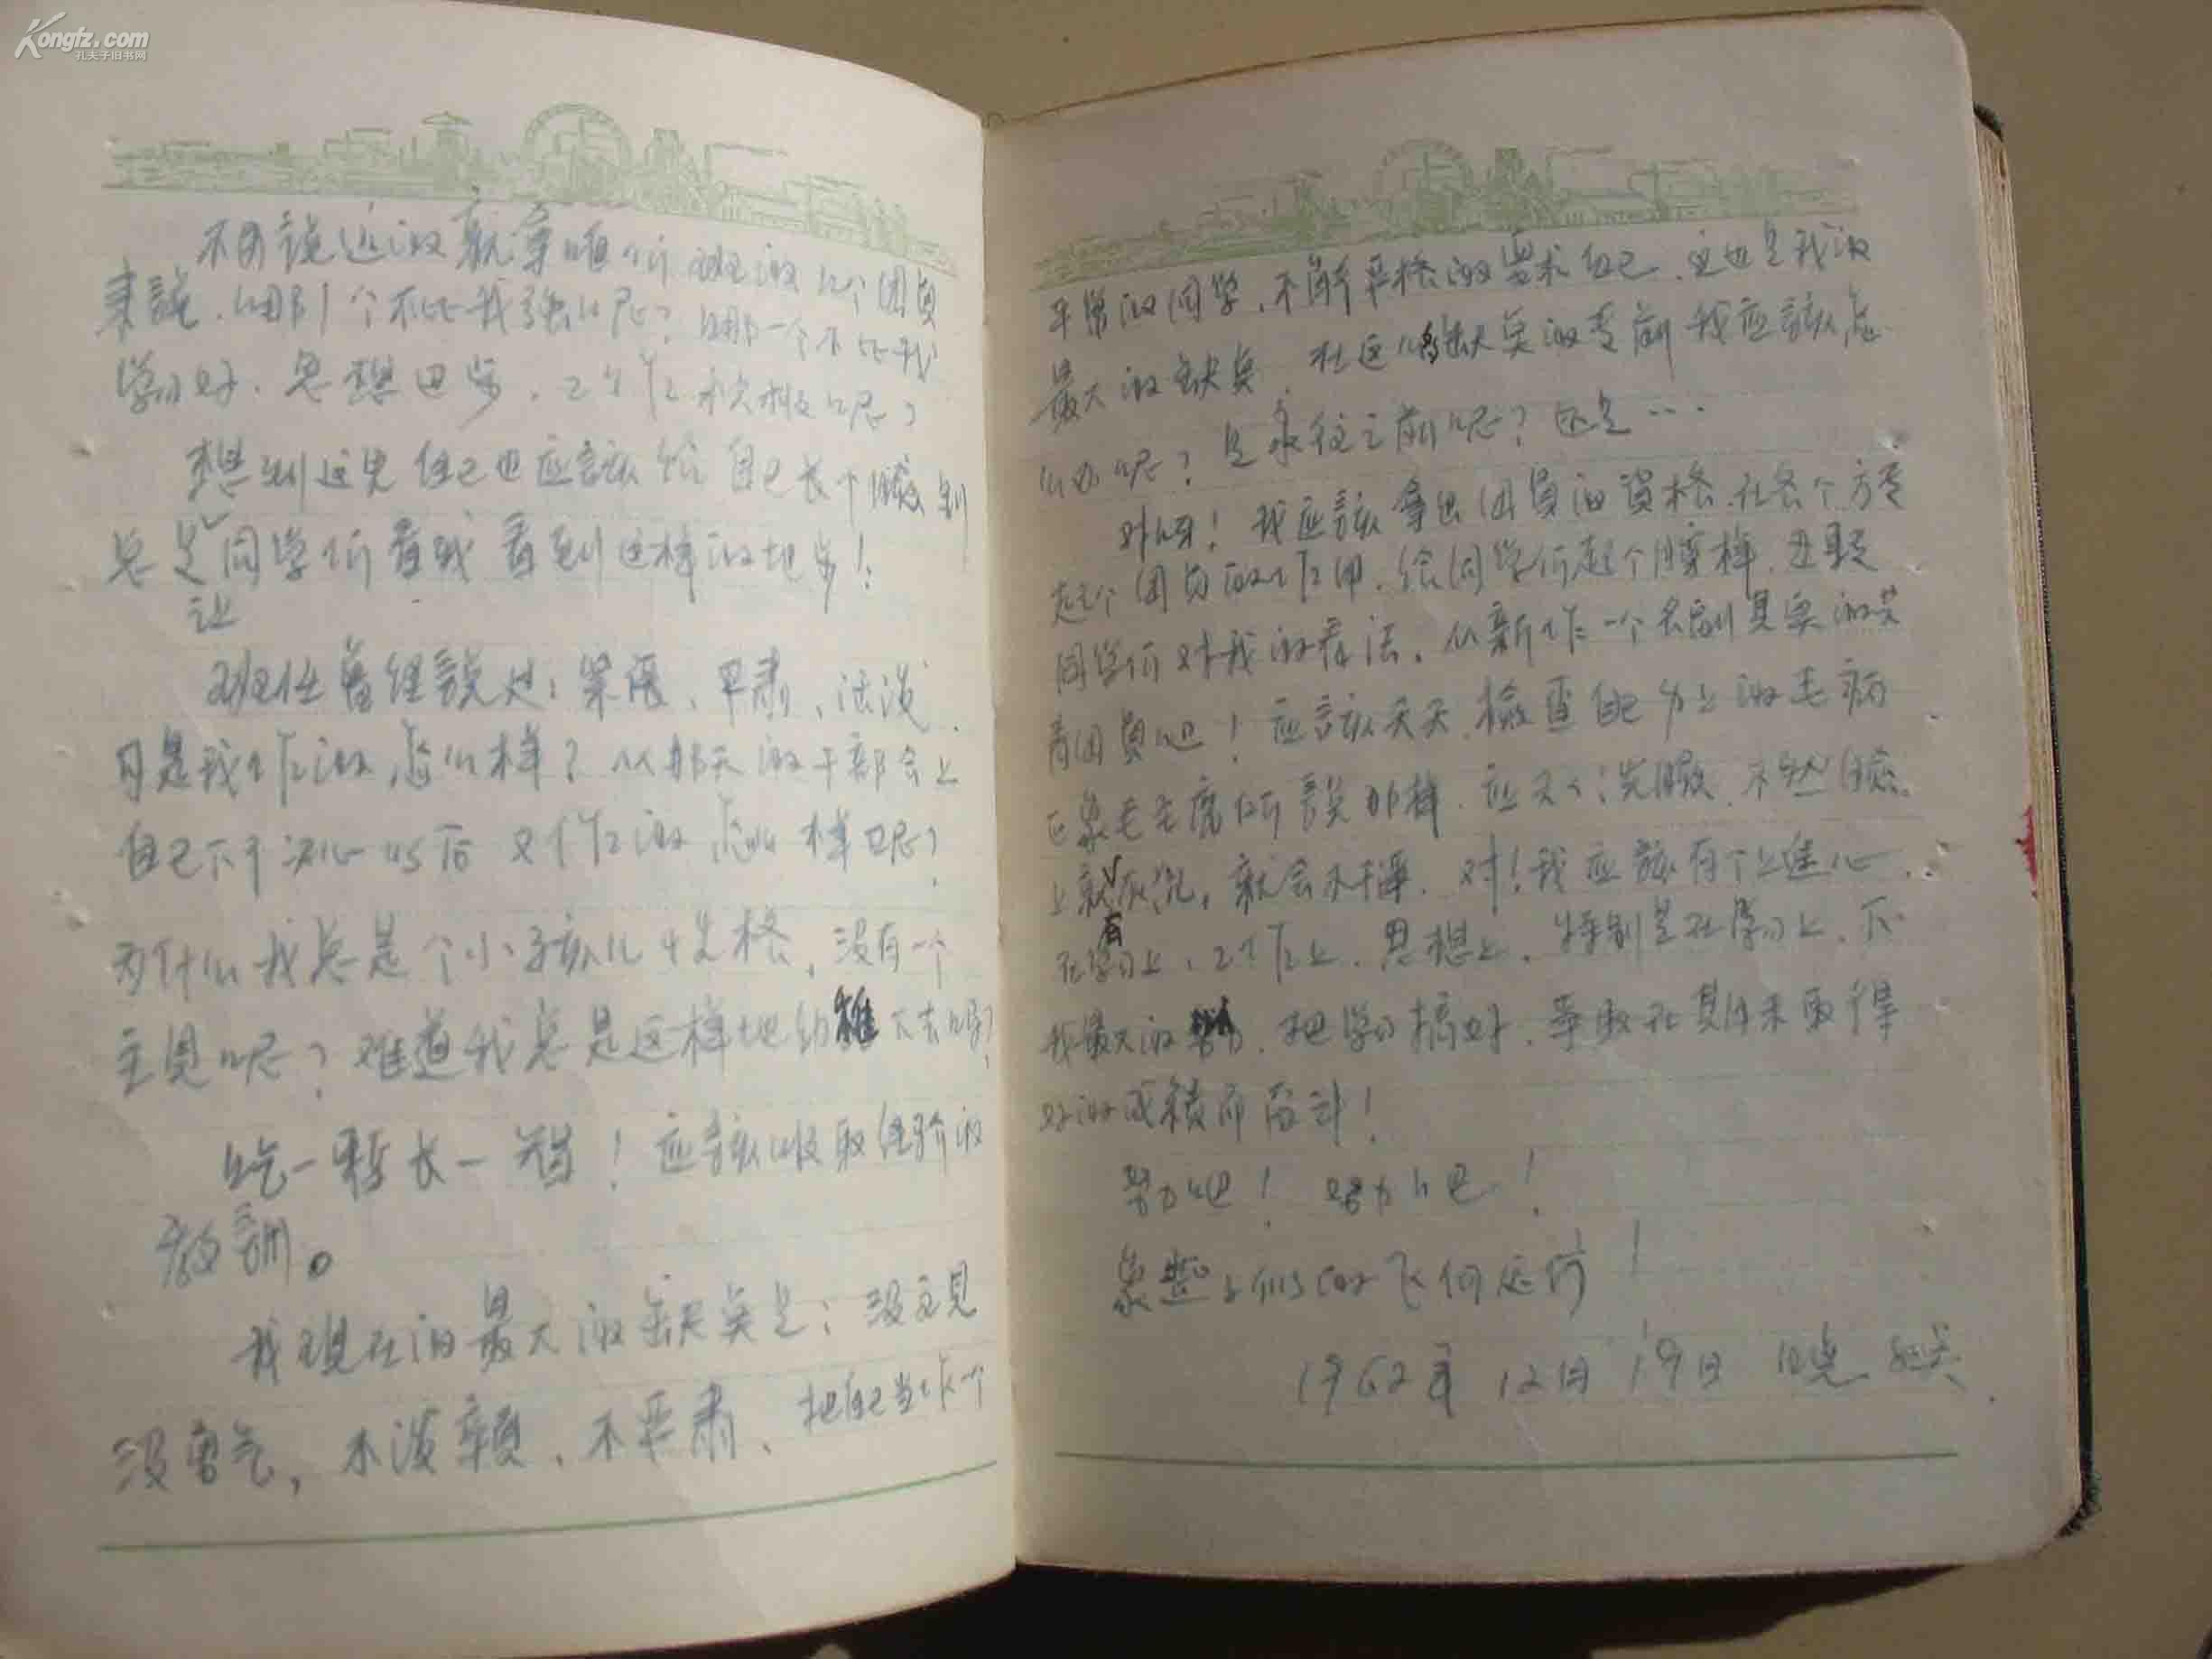 Kongfz.com
孔夫子旧书网
不用说远的就拿咱们班的几个团员
来說，哪个不比我强呢？哪一个不比我
学习好、思想进步、工作积极呢？
想到这里自己也应該给自己长个臉，别
总是同学们看我看到这样的地步！
让
班任曾经說过：紧張、严肃、活泼，
可是我作的怎么样？从那天的干部会上
自己下了决心以后又作的怎么样呢？
为什么我总是个小孩儿性格，没有一个
主見呢？难道我总是这样地幼稚下去吗？
吃一暂长一智！应該吸取经验的
教訓。
我現在的最大的缺点是：没主見
没勇气，不泼辣、不严肃、把自己当作一个
平常的同学，不能严格的要求自己，这也是我的
最大的缺点，在这些缺点的面前我应該怎
么办呢？是永往之前呢？还是……
对呀！我应該拿出团員的資格，在各个方面
起个团員的作用，给同学们起个榜样，
同学们对我的看法，从新作一个名副其实的共
青团員吧！应該天天檢查自己身上的毛病
正象毛主席所說那样，应天天洗臉，不然臉
上就有灰泥，就会不干净，对！我应該有个上进心，
在学习上，工作上，思想上，特别是在学习上，下
我最大的努力，把学习搞好，争取在期末取得
好的成積而奋斗！
努力吧！努力吧！
象 飞 行！
1962年12月19日